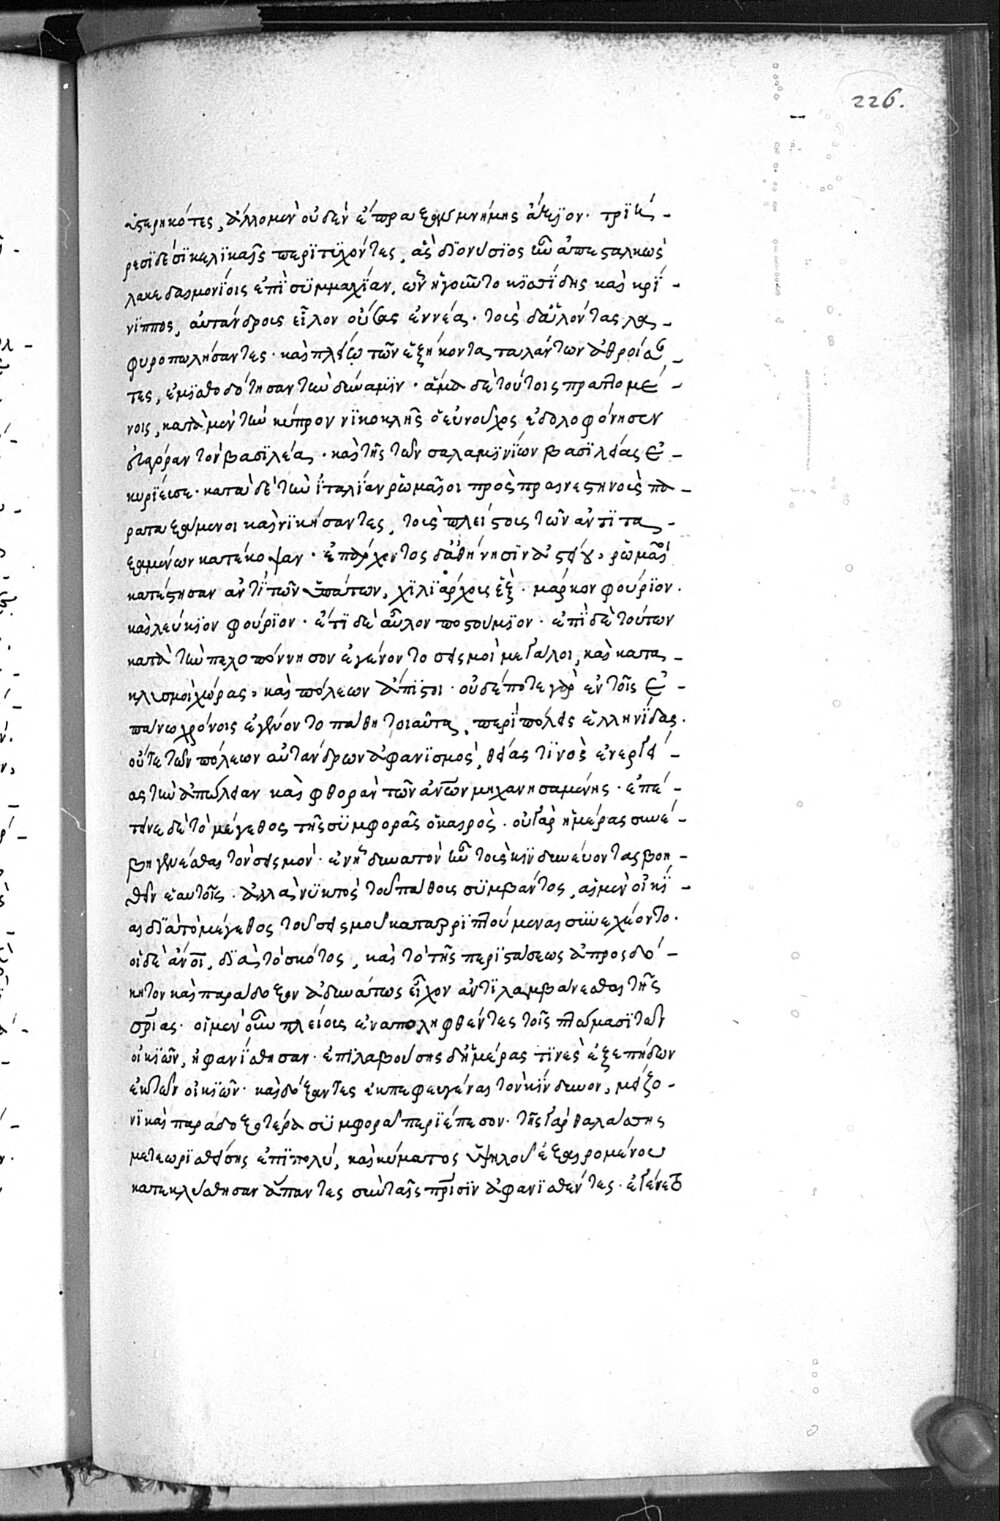 226.
ὑστερηκότες, ἄλλο μὲν οὐδὲν ἔπραξαν μνήμης ἄξιον· τριή-
ρεσι δὲ σικελικαῖς περιτυχόντες, ἃς διονύσιος ἦν ἀπεσταλκὼς
λακεδαιμονίοις ἐπὶ συμμαχίαν, ὧν ἡγοῦντο κισσίδης καὶ κρί-
νιππος, αὐτάνδρους εἷλον οὔσας ἐννέα· τοὺς δ' ἁλόντας λα-
φυροπωλήσαντες· καὶ πλείω τῶν ἑξήκοντα ταλάντων ἀθροίσαν-
τες, ἐμισθοδότησαν τὴν δύναμιν· ἅμα δὲ τούτοις πραττομέ-
νοις, κατὰ μὲν τὴν κύπρον νικοκλῆς ὁ εὐνοῦχος ἐδολοφόνησεν
εὐαγόραν τὸν βασιλέα· καὶ τῆς τῶν σαλαμινίων βασιλείας ἐ-
κυρίευσε· κατὰ δὲ τὴν ἰταλίαν ῥωμαῖοι πρὸς πραινεστηνοὺς πα-
ραταξάμενοι καὶ νικήσαντες, τοὺς πλείστους τῶν ἀντιτα-
ξαμένων κατέκοψαν· ἐπ' ἄρχοντος δ' ἀθήνησιν ἀστείου, ῥωμαῖοι
κατέστησαν ἀντὶ τῶν ὑπάτων, χιλιάρχους ἓξ· μάρκον φούριον·
καὶ λεύκιον φούριον· ἔτι δὲ αὖλον ποστούμιον· ἐπὶ δὲ τούτων
κατὰ τὴν πελοπόννησον ἐγένοντο σεισμοὶ μεγάλοι, καὶ κατα-
κλυσμοὶ χώρας, καὶ πόλεων ἄπιστοι· οὐδέποτε γὰρ ἐν τοῖς ἐ-
πάνω χρόνοις ἐγένοντο πάθη τοιαῦτα, περὶ πόλεις ἑλληνίδας·
οὔτε τῶν πόλεων αὐτάνδρων ἀφανισμὸς, θείας τινὸς ἐνεργεί-
ας τὴν ἀπώλειαν καὶ φθορὰν τῶν ἀνων μηχανησαμένης· ἐπέ-
τεινε δὲ τὸ μέγεθος τῆς συμφορᾶς ὁ καιρὸς· οὐ γὰρ ἡμέρας συνέ-
βη γενέσθαι τὸν σεισμόν· ἐν ᾗ δυνατὸν ἦν τοὺς κινδυνεύοντας βοη-
θεῖν ἑαυτοῖς· ἀλλὰ νυκτὸς τοῦ πάθους συμβάντος, αἱ μὲν οἰκί-
αι διὰ τὸ μέγεθος τοῦ σεισμοῦ καταρριπτούμεναι συνεχέοντο·
οἱ δὲ ἄνοι, διά τε τὸ σκότος, καὶ τὸ τῆς περιστάσεως ἀπροσδό-
κητον καὶ παράδοξον ἀδυνάτως εἶχον ἀντιλαμβάνεσθαι τῆς
σριας· οἱ μὲν οὖν πλείους ἐναποληφθέντες τοῖς πτώμασι τῶν
οἰκιῶν, ἠφανίσθησαν· ἐπιλαβούσης δ' ἡμέρας τινὲς ἐξεπήδων
ἐκ τῶν οἰκιῶν· καὶ δόξαντες ἐκπεφευγέναι τὸν κίνδυνον, μείζο-
νι καὶ παραδοξοτέρα συμφορᾶ περιέπεσον· τῆς γὰρ θαλάσσης
μετεωρισθείσης ἐπὶ πολύ, καὶ κύματος ὑψηλοῦ ἐξαιρομένου
κατεκλύσθησαν ἅπαντες σὺν ταῖς πρισιν ἀφανισθέντες· ἐγένετο